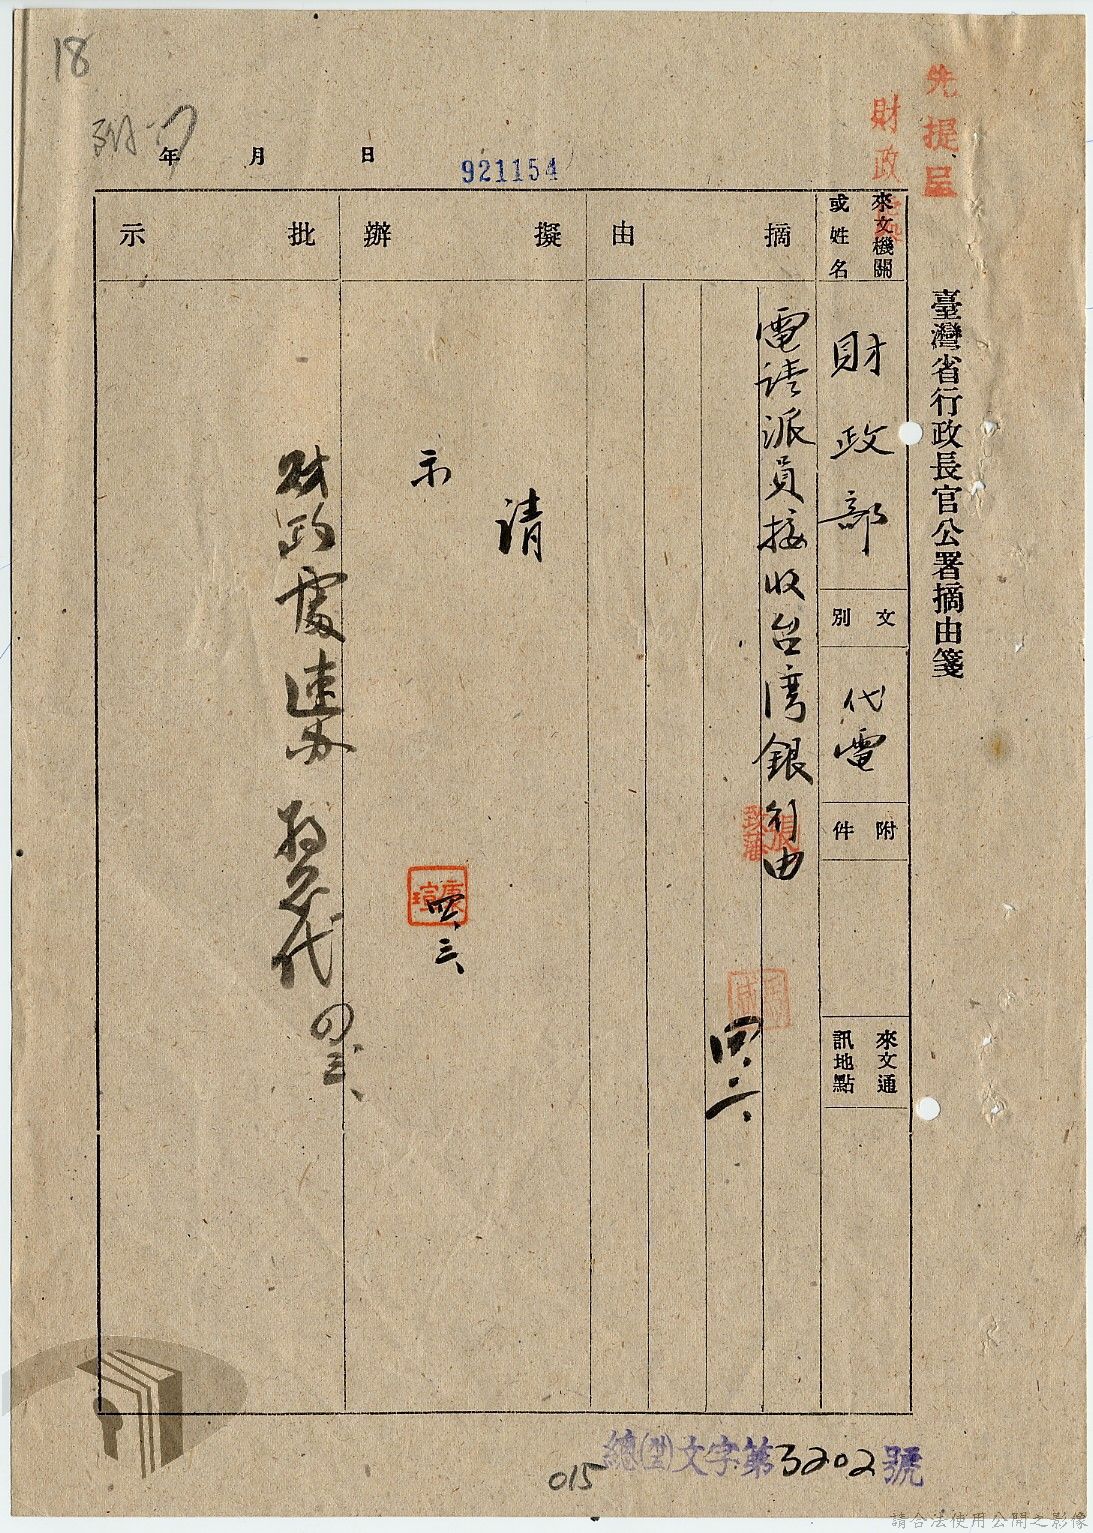 臺灣省行政長官公署摘由箋
先提呈
財政處
來文機關或姓名
財政部
文別
代電
附件
來文通訊地點
摘由
電請派員接收台灣銀行由
四、二、
擬辦
請
示
康瑄
四、三、
批示
財政處速办
代
四、三、
年月日
921154
18
總文字第3202號
015
請合法使用公開之影像